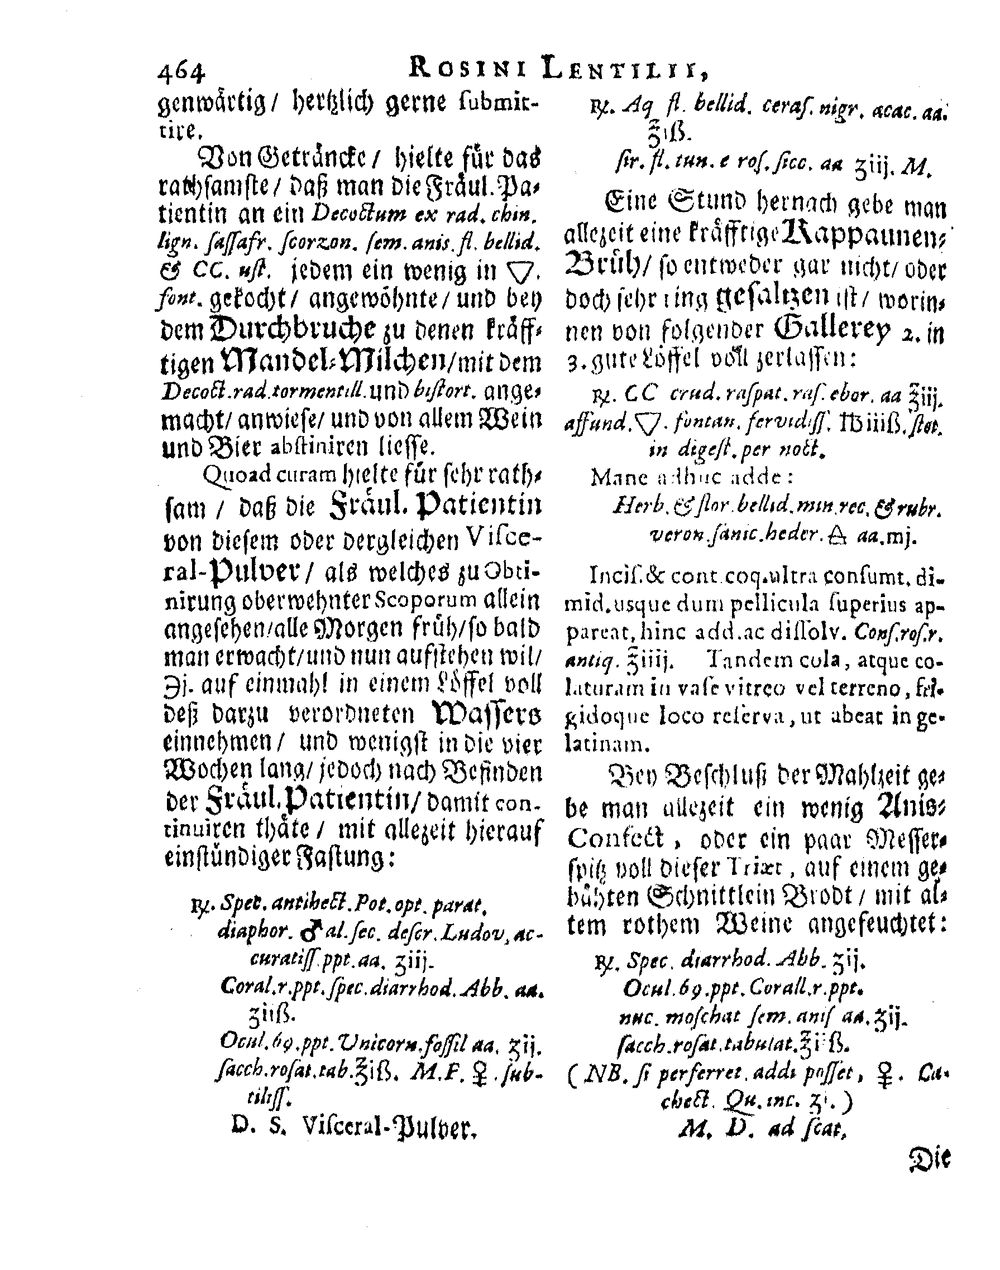 464 ROSINI LENTILII,
genwärtig/ hertzlich gerne ſubmit-
tire.
Von Geträncke/ hielte für das
rathſamſte/ daß man die Fräul. Pa-
tientin an ein Decoctum ex rad. chin.
lign. ſaſſafr. ſcorzon. ſem. anis. fl. bellid.
& CC. uſt. jedem ein wenig in 🜄.
font. gekocht/ angewöhnte/ und bey
dem Durchbruche zu denen kräff-
tigen Mandel-Milchen/ mit dem
Decoct. rad. tormentill. und biſtort. ange-
macht/ anwieſe/ und von allem Wein
und Bier abſtiniren lieſſe.
Quoad curam hielte für ſehr rath-
ſam / daß die Fräul. Patientin
von dieſem oder dergleichen Viſce-
ral-Pulver/ als welches zu Obti-
nirung oberwehnter Scoporum allein
angeſehen/ alle Morgen früh/ ſo bald
man erwacht/ und nun aufſtehen wil/
℈j. auf einmahl in einem Löffel voll
deß darzu verordneten Waſſers
einnehmen/ und wenigſt in die vier
Wochen lang/ jedoch nach Befinden
der Fräul. Patientin/ damit con-
tinuiren thäte/ mit allezeit hierauf
einſtündiger Faſtung:
℞. Spec. antihect. Pot. opt. parat.
diaphor. ♂al. ſec. deſcr. Ludov. ac-
curatiſſ. ppt. aa. ʒiij.
Coral. r. ppt. ſpec. diarrhod. Abb. aa.
ʒiiß.
Ocul. 69. ppt. Unicorn. foſſil aa. ʒij.
ſacch. roſat. tab. ℥iß. M. F. ♀. ſub-
tiliſſ.
D. S. Viſceral-Pulver.
℞. Aq fl. bellid. ceraſ. nigr. acac. aa.
℥iß.
ſir. fl. tun. e roſ. ſicc. aa ʒiij. M.
Eine Stund hernach gebe man
allezeit eine kräfftige Kappaunen-
Brüh/ ſo entweder gar nicht/ oder
doch ſehr ring geſaltzen iſt/ worin-
nen von folgender Gallerey 2. in
3. gute Löffel voll zerlaſſen:
℞. CC crud. raſpat. raſ. ebor. aa ℥iij.
affund. 🜄. fontan. fervidiſſ. ℔iiiß. ſtet.
in digeſt. per noct.
Mane adhuc adde:
Herb. & flor. bellid. min. rec. & rubr.
veron. ſanic. heder. 🜁 aa. mj.
Inciſ. & cont. coq. ultra conſumt. di-
mid. usque dum pellicula ſuperius ap-
pareat, hinc add. ac diſſolv. Conſ. roſ. r.
antiq. ℥iiij. Tandem cola, atque co-
laturam in vaſe vitreo vel terreno, fri-
gidoque loco reſerva, ut abeat in ge-
latinam.
Bey Beſchluß der Mahlzeit ge-
be man allezeit ein wenig Anis-
Confect, oder ein paar Meſſer-
ſpitz voll dieſer Triæt, auf einem ge-
bähten Schnittlein Brodt/ mit al-
tem rothem Weine angefeuchtet:
℞. Spec. diarrhod. Abb. ʒij.
Ocul. 69. ppt. Corall. r. ppt.
nuc. moſchat ſem. aniſ aa. ʒij.
ſacch. roſat. tabulat. ℥iß.
(NB. ſi perferret, addi poſſet, ♀. Ca-
chect. Qu. inc. ʒi.)
M. D. ad ſcat.
Die